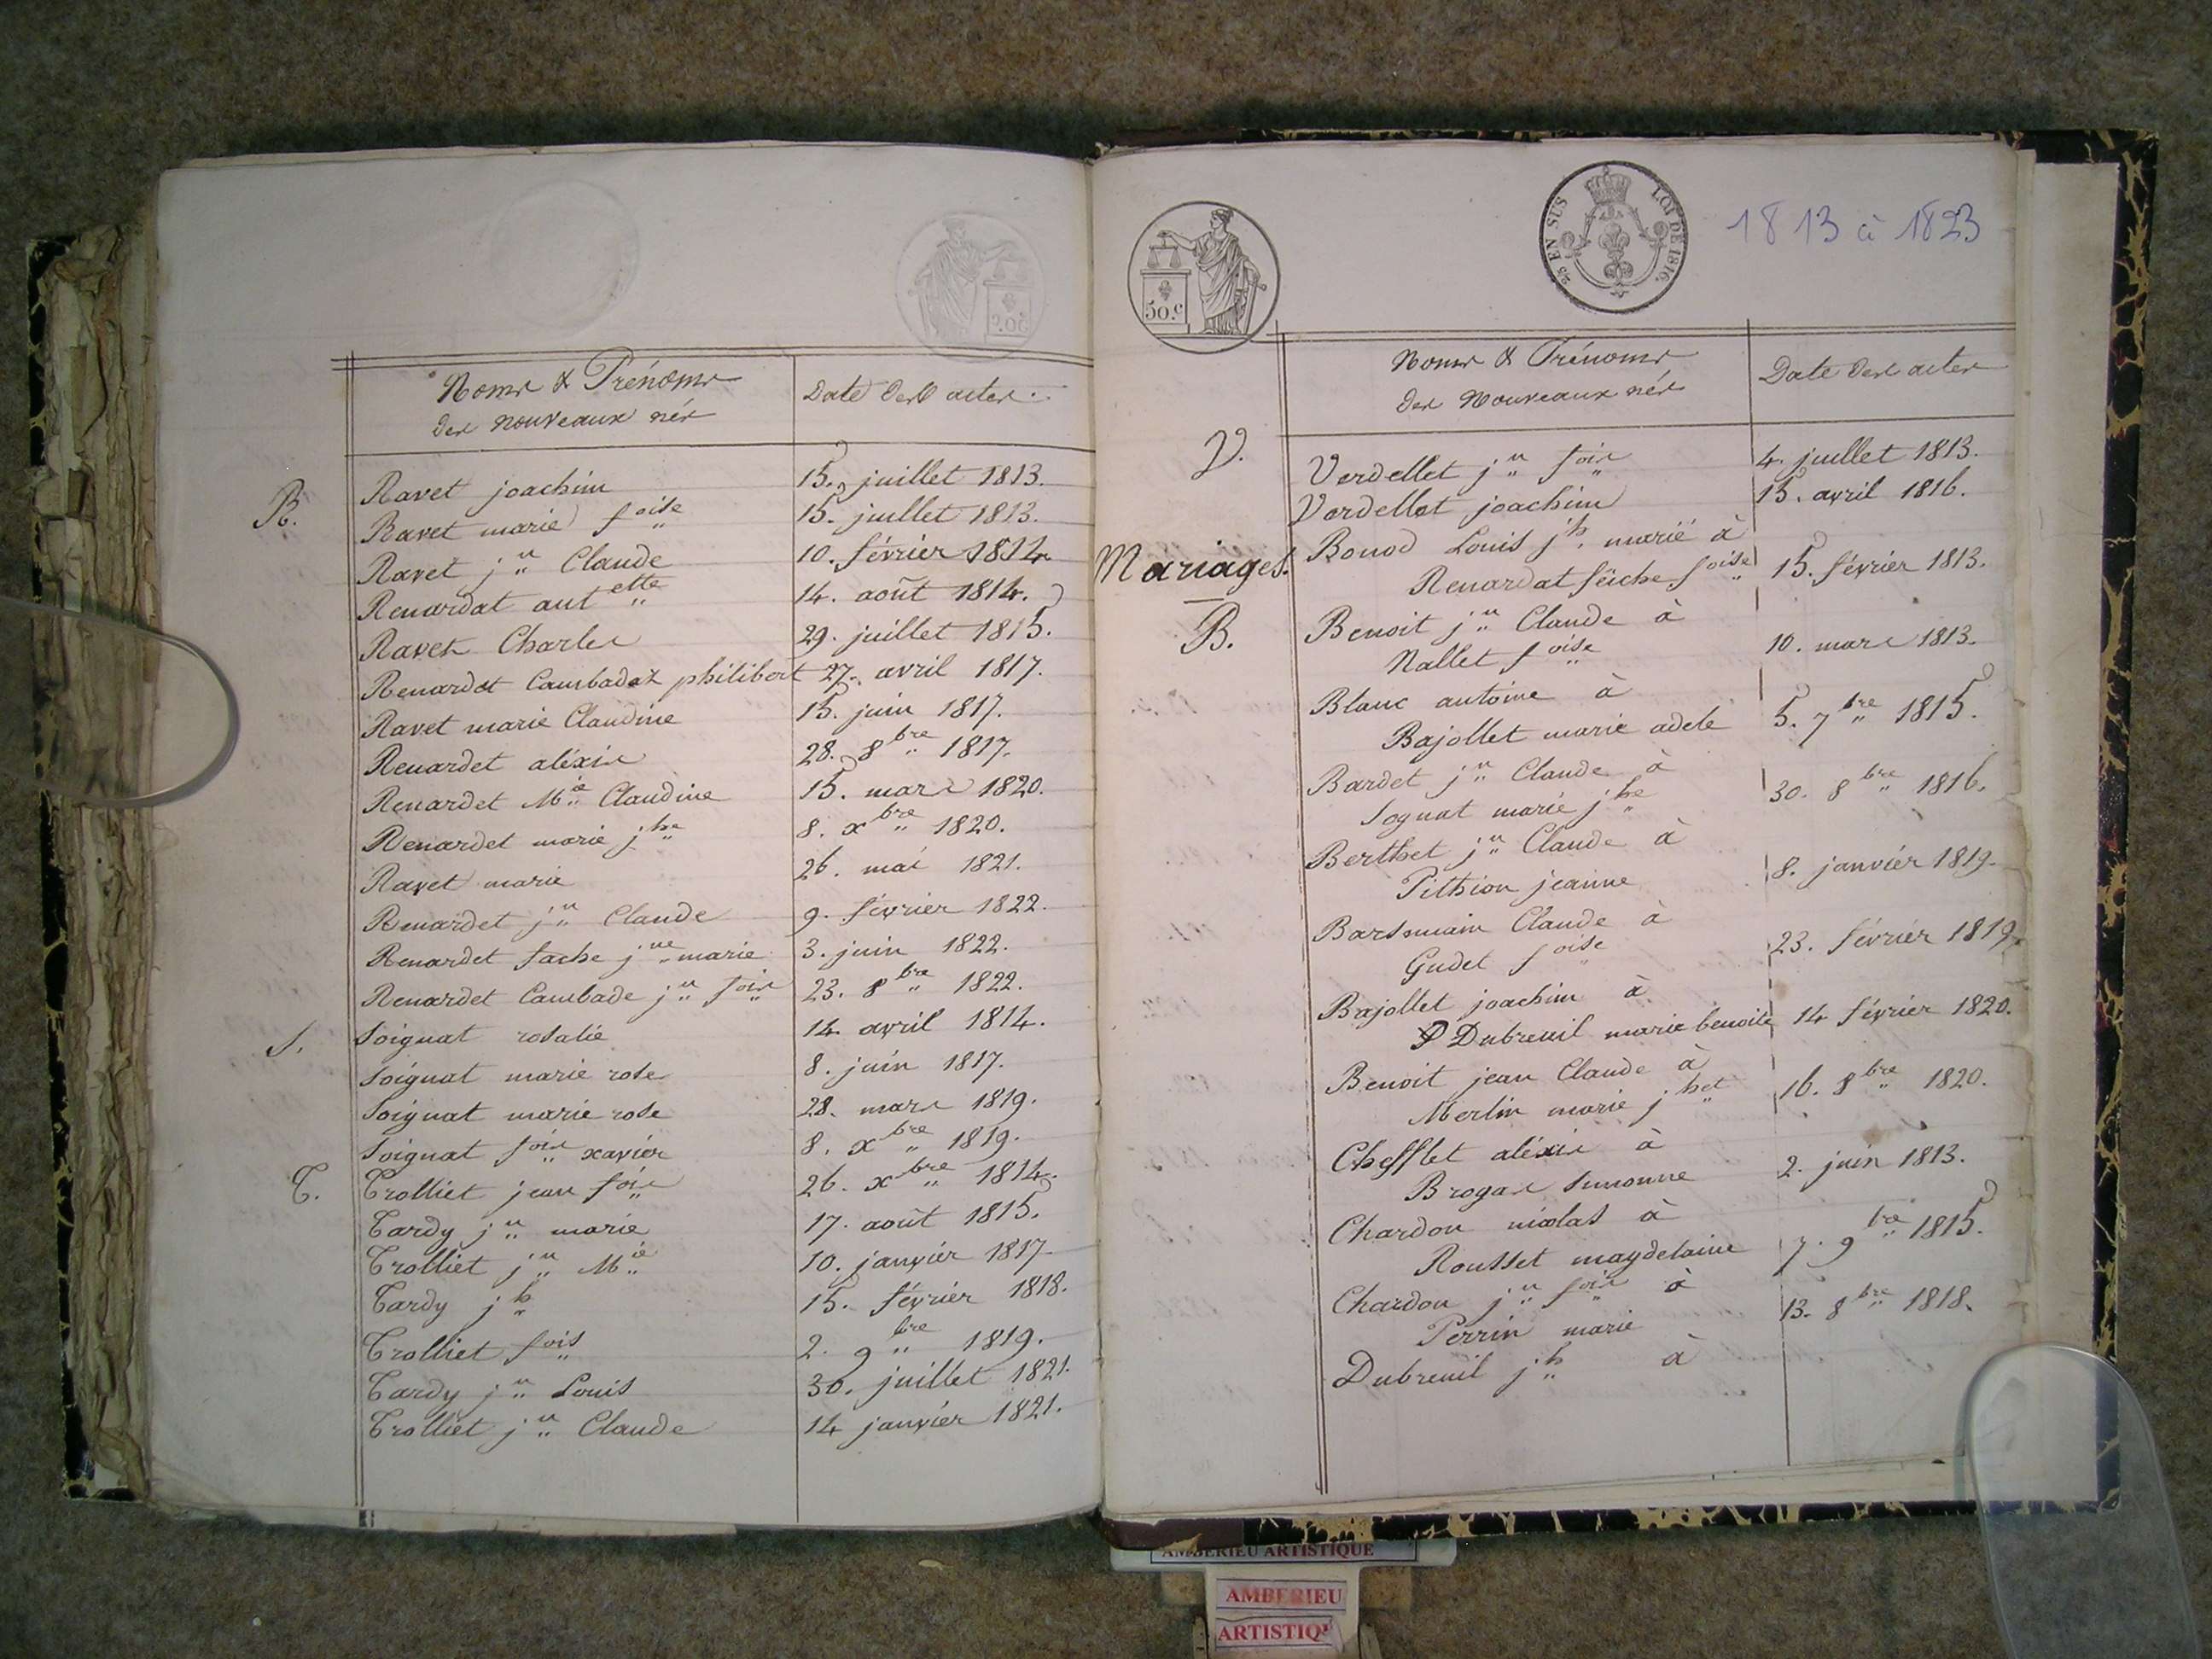 Noms & Prénoms
des nouveaux nés
Date des actes
R.
Ravet joachim 15. juillet 1813.
Ravet marie foise 15. juillet 1813.
Ravet jn Claude 10. février 1814
Renardat antette 14. août 1814.
Ravet Charles 29. juillet 1815.
Renardet Cambadet philibert 27. avril 1817.
Ravet marie Claudine 15. juin 1817.
Renardet aléxis 28. 8bre 1817.
Renardet Mie Claudine 15. mars 1820.
Renardet marie jhe 8. xbre 1820.
Ravet marie 26. mai 1821.
Renardet jn Claude 9. février 1822.
Renardet fache jne marie 3. juin 1822.
Renardet Cambade jn fois 23. 8bre 1822.
S.
Soignat rosalie 14. avril 1814.
Soignat marie rose 8. juin 1817.
Soignat marie rose 28. mars 1819.
Soignat fois xavier 8. xbre 1819.
T.
Trolliet jean fois 26. xbre 1814.
Tardy jn marie 17. août 1815.
Trolliet jn Mie 10. janvier 1817.
Tardy jh 15. février 1818.
Trolliet fois 2. 9bre 1819.
Tardy jn Louis 30. juillet 1821.
Trolliet jn Claude 14 janvier 1821.
50.c
25 EN SUS LOI DE 1816.
1813 à 1823
Noms & Prénoms
des nouveaux nés
Date des actes
V.
Verdellet jn fois 4. juillet 1813.
Verdellet joachim 15. avril 1816.
Mariages.
B.
Bonod Louis jh. marié à
Renardat féiche foise 15. février 1813.
Benoit jn Claude à
Nallet foise 10. mars 1813.
Blanc antoine à
Bajollet marie adele 5. 7bre 1815.
Bardet jn Claude à
Sognat marie jhe 30. 8bre 1816.
Berthet jn Claude à
Pithion jeanne 8. janvier 1819.
Barsmain Claude à
Gudet foise 23. février 1819.
Bajollet joachim à
Dubreuil marie benoite 14 février 1820.
Benoit jean Claude à
Merlin marie jhet 16. 8bre 1820.
Chefflet aléxis à
Brogas simonne 2. juin 1813.
Chardon nicolas à
Rousset magdelaine 7. 9bre 1815.
Chardon jn fois à
Perrin marie 13. 8bre 1818.
Dubreuil jh à
AMBERIEU ARTISTIQUE
AMBERIEU
ARTISTIQU